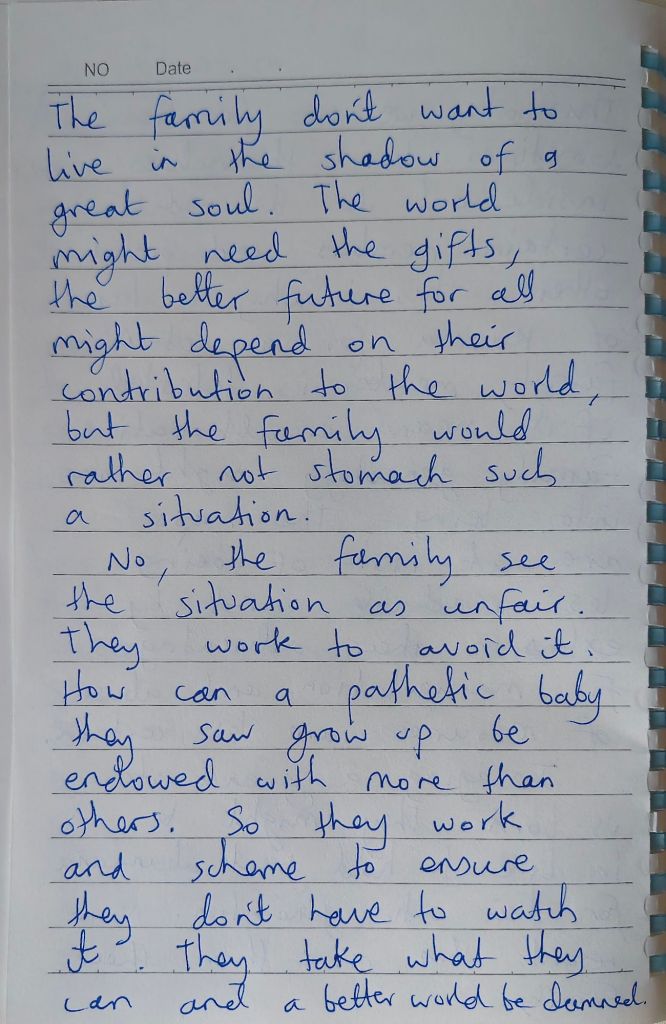 NO Date . .
The family don't want to
live in the shadow of a
great soul. The world
might need the gifts,
the better future for all
might depend on their
contribution to the world,
but the family would
rather not stomach such
a situation.
No, the family see
the situation as unfair.
They work to avoid it.
How can a pathetic baby
they saw grow up be
endowed with more than
others. So they work
and scheme to ensure
they don't have to watch
it. They take what they
can and a better world be damned.